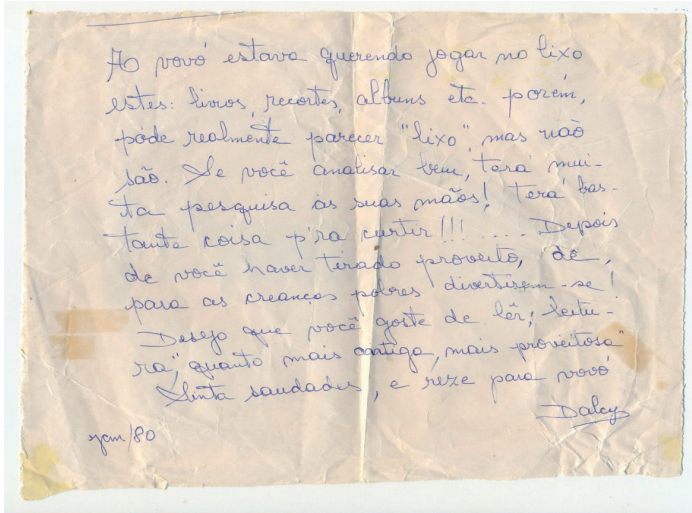 A vovó estava querendo jogar no lixo
estes: livros, recortes, albuns etc. porém,
póde realmente parecer "lixo", mas não
são. Se você analisar bem, terá mui-
ta pesquisa às suas mãos! terá bas-
tante coisa p'ra curtir!!! .... Depois
de você haver tirado proveito, dê,
para as creanças pobres divertirem-se!
Desejo que você goste de lêr; leitu-
ra, "quanto mais antiga, mais proveitosa"
Sinta saudades, e reze para vovó
Dalcy
/80